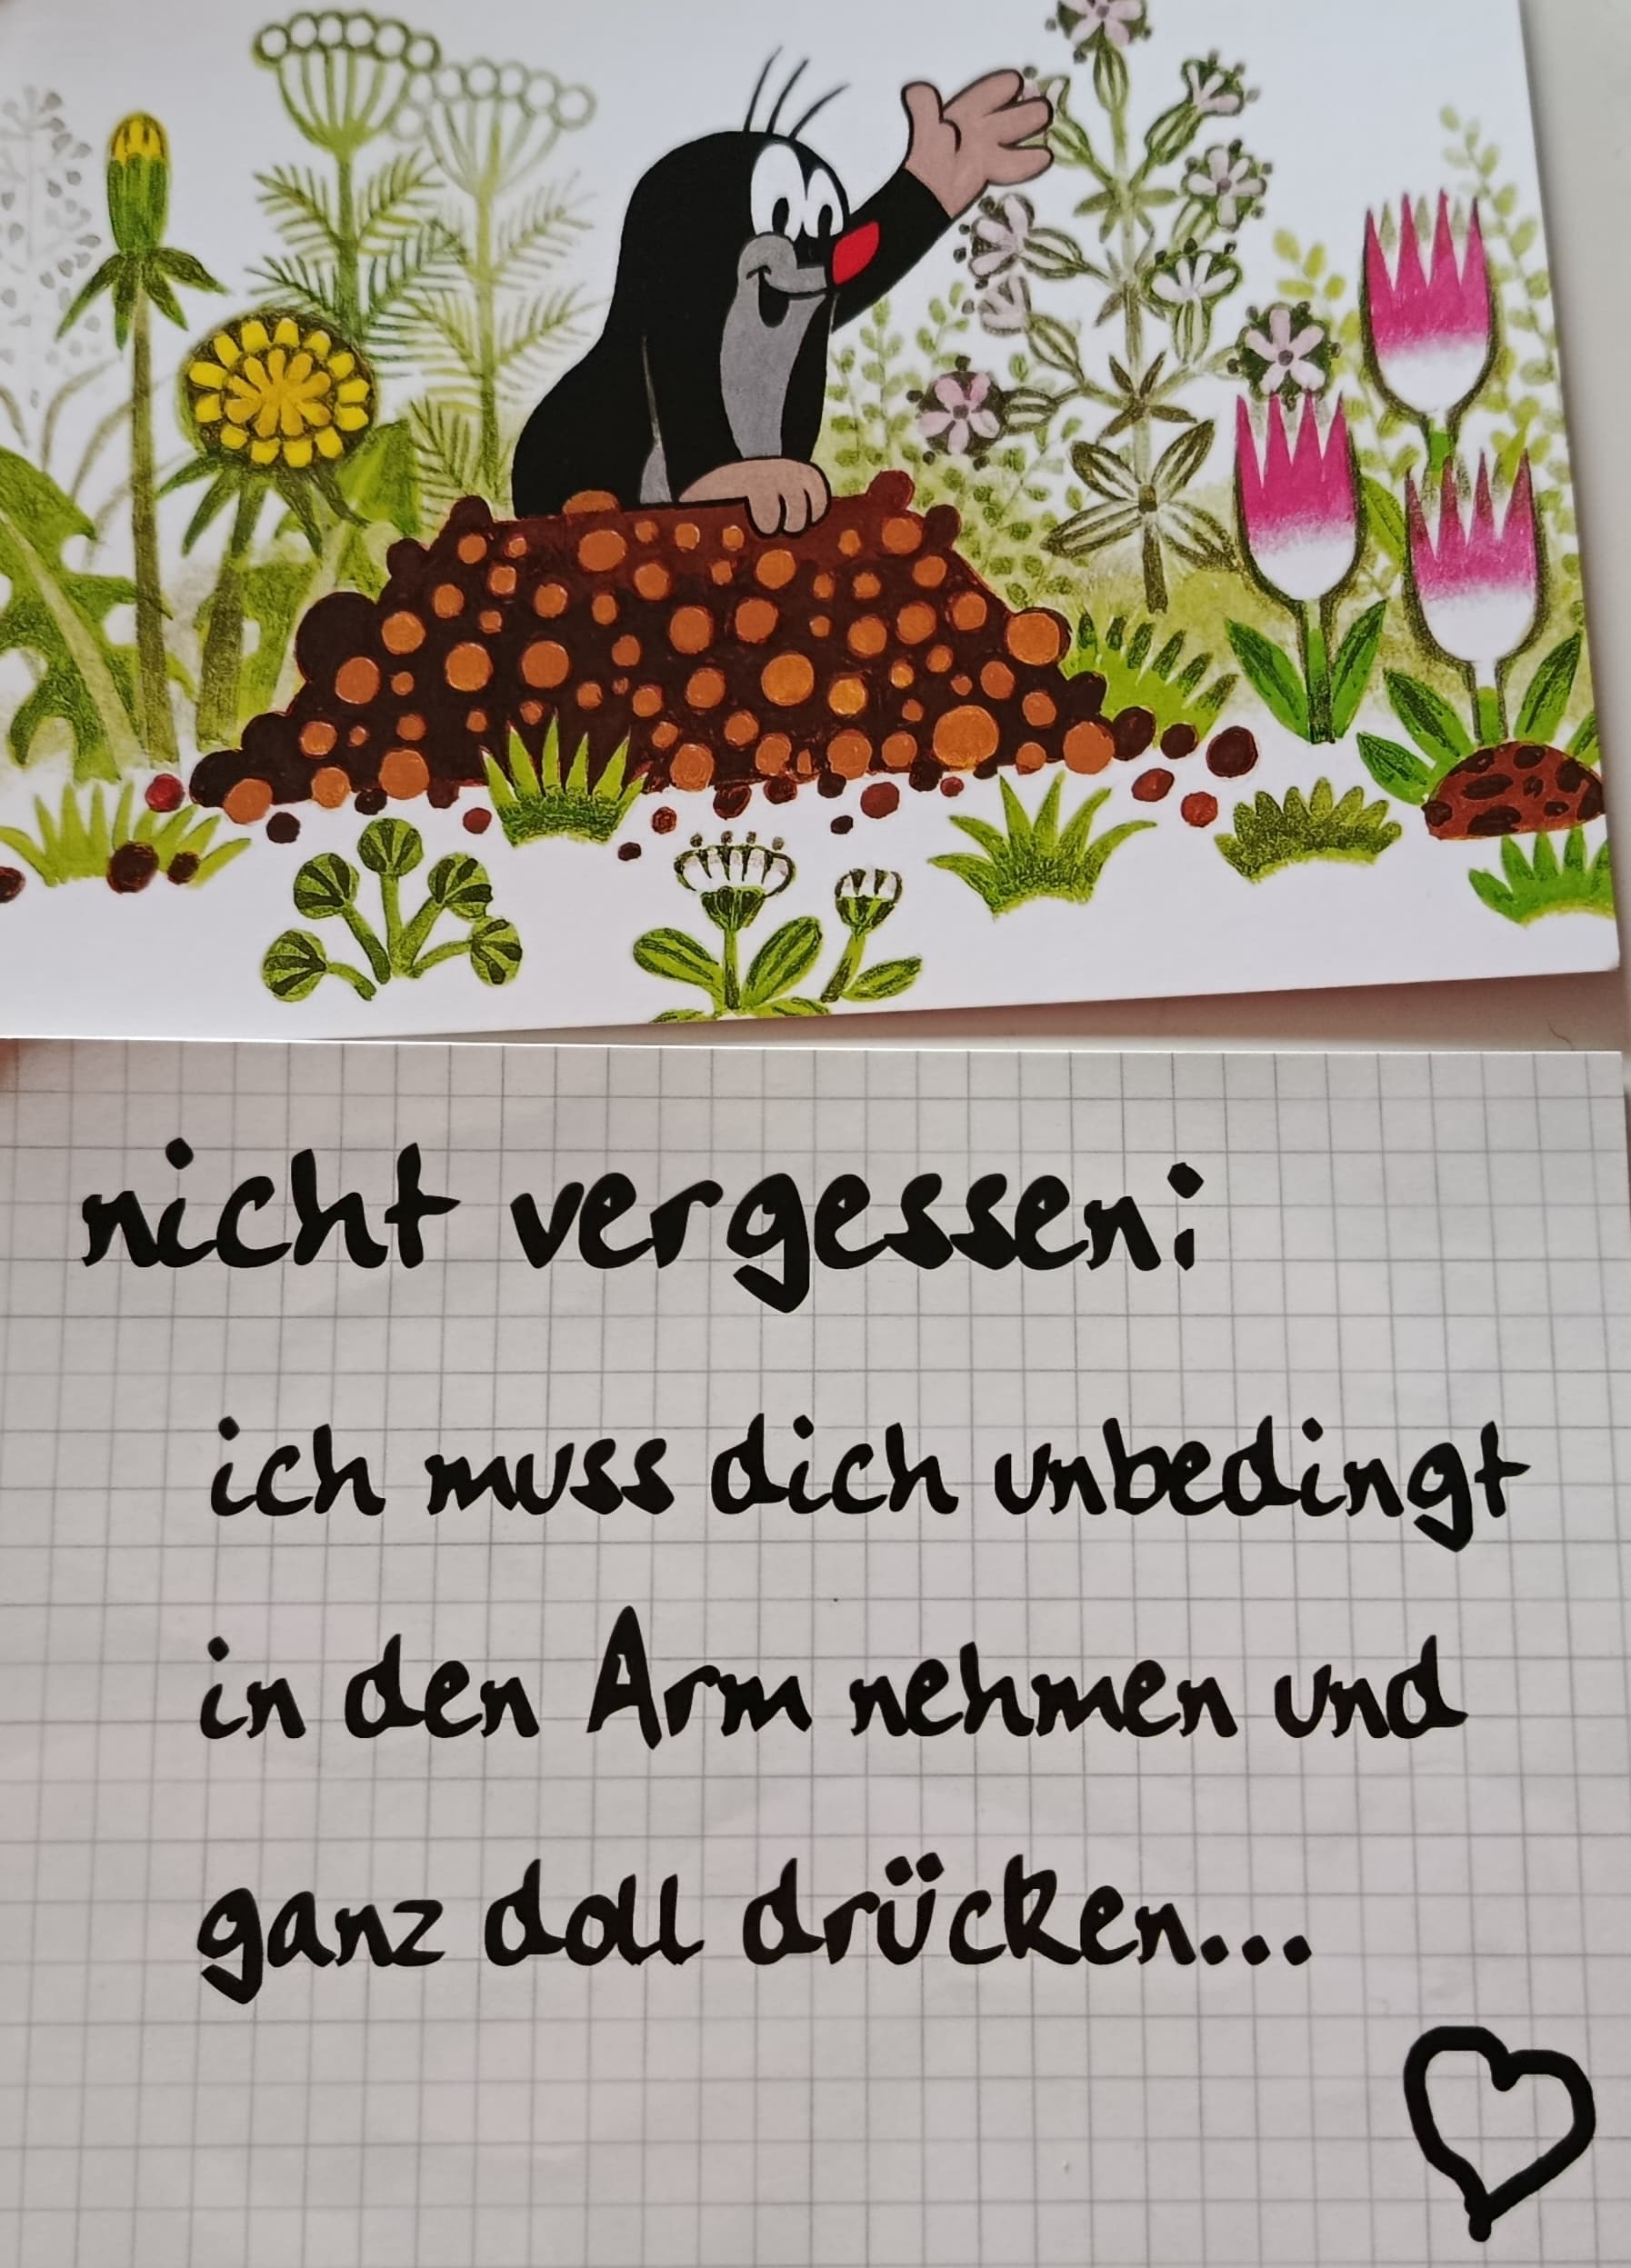 nicht vergessen:
ich muss dich unbedingt
in den Arm nehmen und
ganz doll drücken...